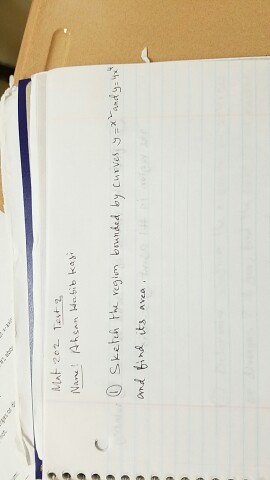 Mat 202 Test 2
Name: Ahsan Habib Kazi
① Sketch the region bounded by curves y = x² and y = 4x⁴
and find its area.